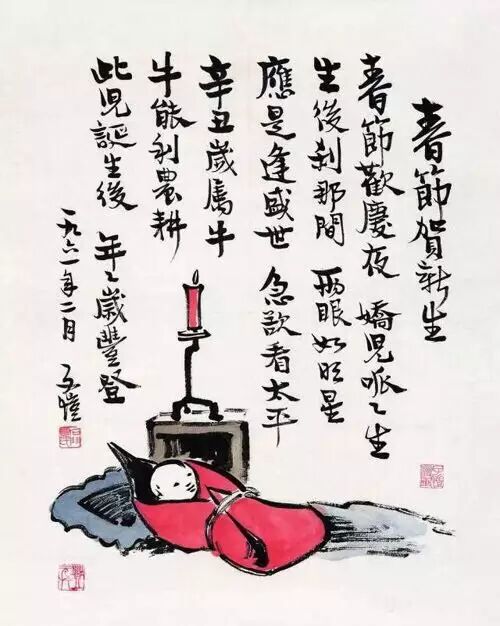 春節賀新生
春節歡慶夜 嬌兒呱〻生
生後刹那間 兩眼如明星
應是逢盛世 急欲看太平
辛丑歲屬牛
牛能利農耕
此兒誕生後 年〻歲豐登
一九六一年二月 子愷